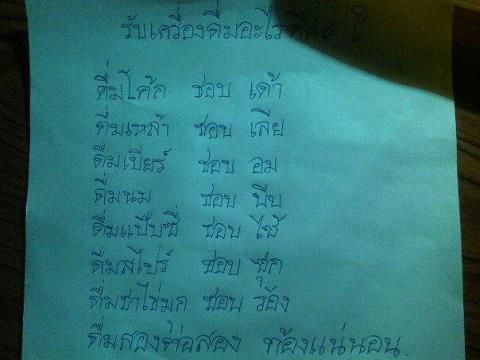 รับเครื่องดื่มอะไรดีคะ
ดื่มโค้ก ชอบ เด้า
ดื่มเหล้า ชอบ เลีย
ดื่มเบียร์ ชอบ อม
ดื่มนม ชอบ บีบ
ดื่มแป๊บซี่ ชอบ ไซ้
ดื่มสไปร์ ชอบ ซุก
ดื่มชาไข่มุก ชอบ ร้อง
ดื่มสองต่อสอง ท้องแน่นอน